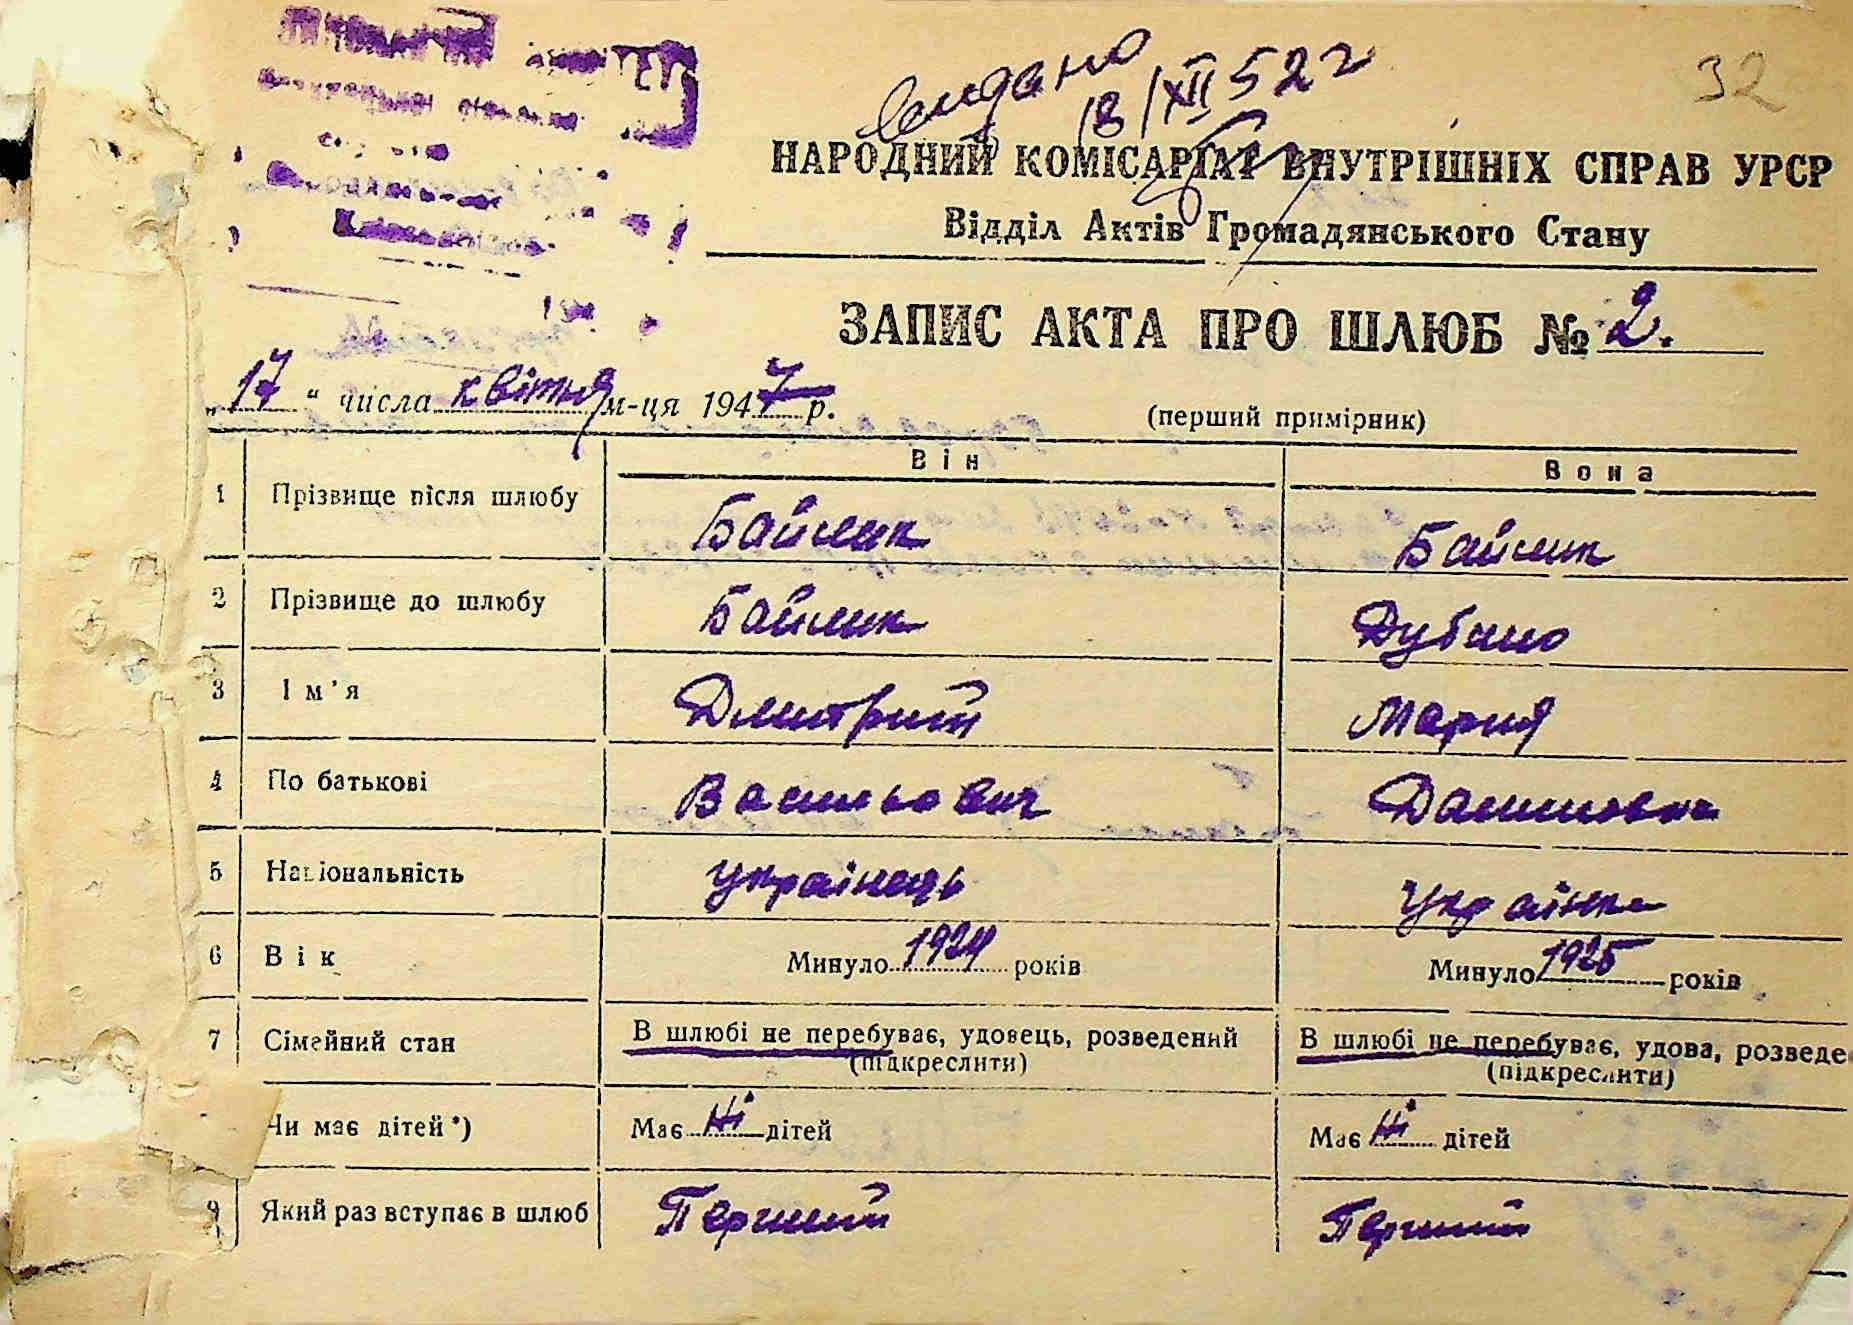 видано
18/XII 52 г
32
НАРОДНИЙ КОМІСАРІАТ ВНУТРІШНІХ СПРАВ УРСР
Відділ Актів Громадянського Стану
ЗАПИС АКТА ПРО ШЛЮБ № 2.
„17“ числа квітня м-ця 1947 р.
(перший примірник)
Він Вона
1 Прізвище після шлюбу Байлик Байлик
2 Прізвище до шлюбу Байлик
3 Ім'я Дмитрий Мария
4 По батькові Васильович Даниловна
5 Національність українець Українка
6 Вік Минуло 1924 років Минуло 1925 років
7 Сімейний стан В шлюбі не перебуває, удовець, розведений В шлюбі не перебуває, удова, розведе
(підкреслити) (підкреслити)
Чи має дітей*) Має Ні дітей Має Ні дітей
9 Який раз вступає в шлюб Перший Перший